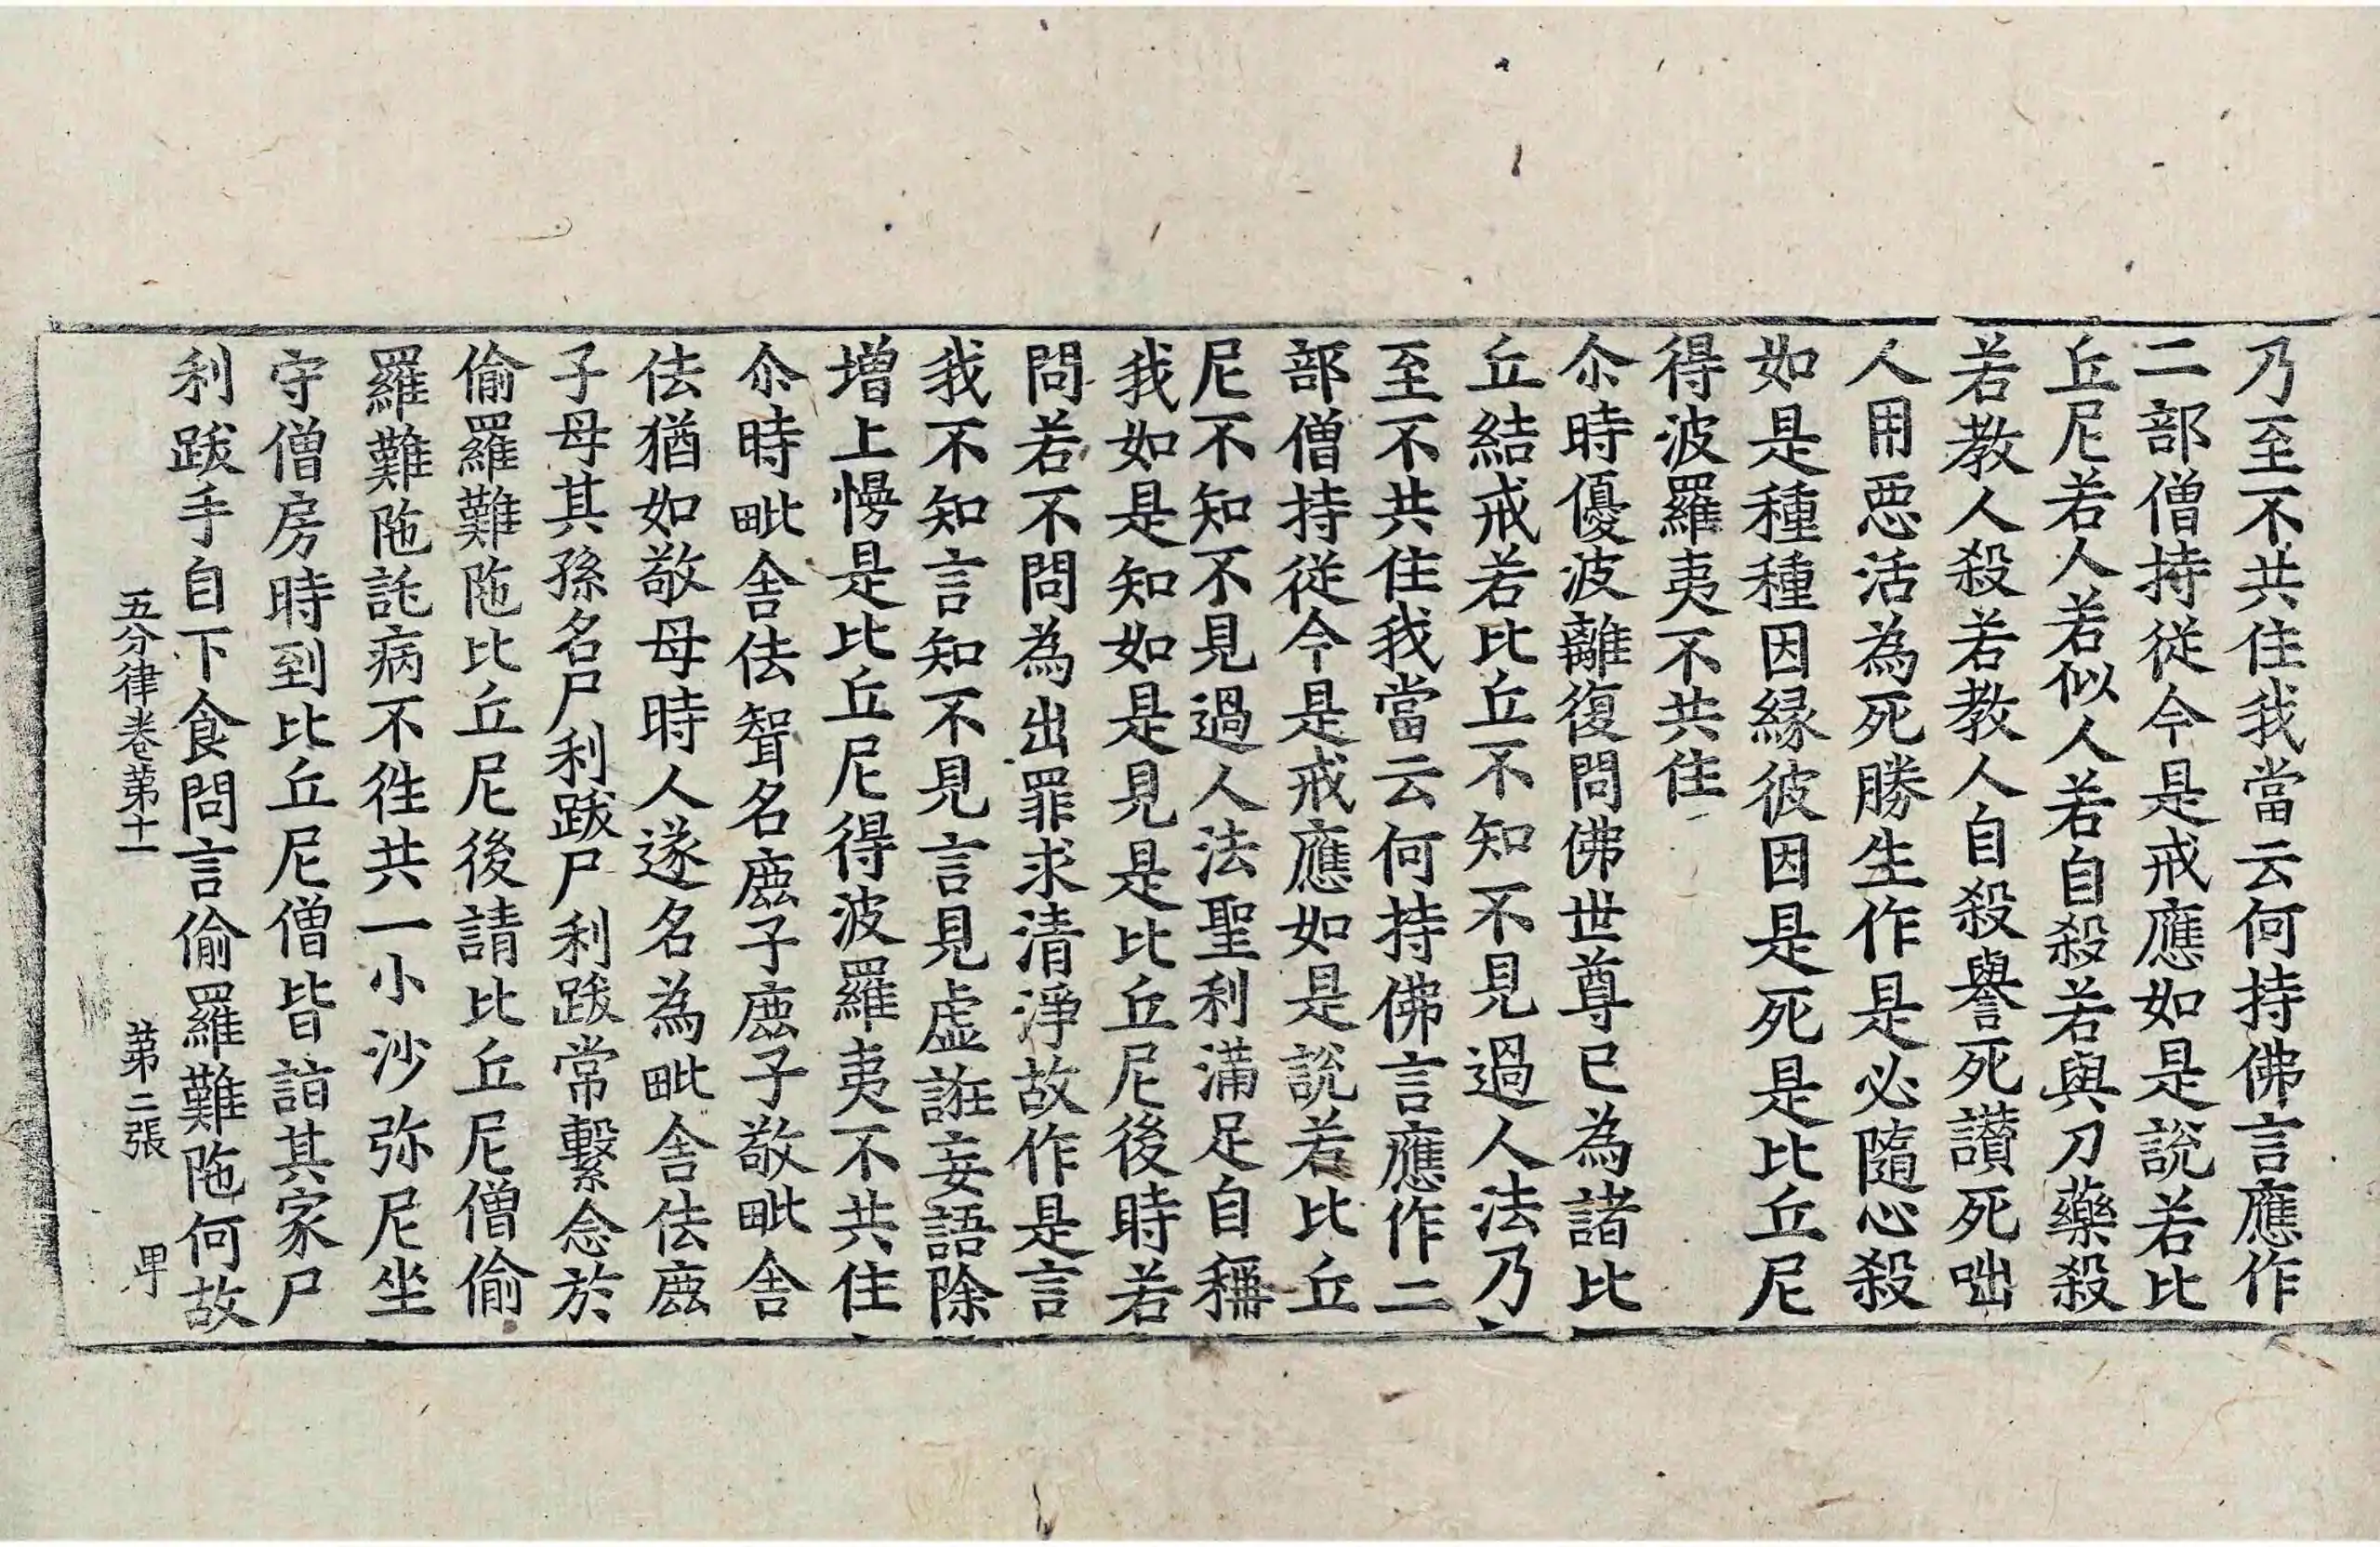 乃至不共住我當云何持佛言應作
二部僧持従今是戒應如是說若比
丘尼若人若似人若自殺若與刀藥殺
若教人殺若教人自殺譽死讃死咄
人用惡活為死勝生作是必隨心殺
如是種種因縁彼因是死是比丘尼
得波羅夷不共住
尒時優波離復問佛世尊已為諸比
丘結戒若比丘不知不見過人法乃
至不共住我當云何持佛言應作二
部僧持従今是戒應如是說若比丘
尼不知不見過人法聖利滿足自稱
我如是知如是見是比丘尼後時若
問若不問為出罪求清淨故作是言
我不知言知不見言見虛誑妄語除
增上慢是比丘尼得波羅夷不共住
尒時毗舎佉聟名鹿子鹿子敬毗舎
佉猶如敬母時人遂名為毗舎佉鹿
子母其孫名尸利跋尸利跋常繫念於
偷羅難陁比丘尼後請比丘尼僧偷
羅難陁託病不徃共一小沙弥尼坐
守僧房時到比丘尼僧皆詣其家尸
利跋手自下食問言偷羅難陁何故
五分律卷第十一 第二張 甲